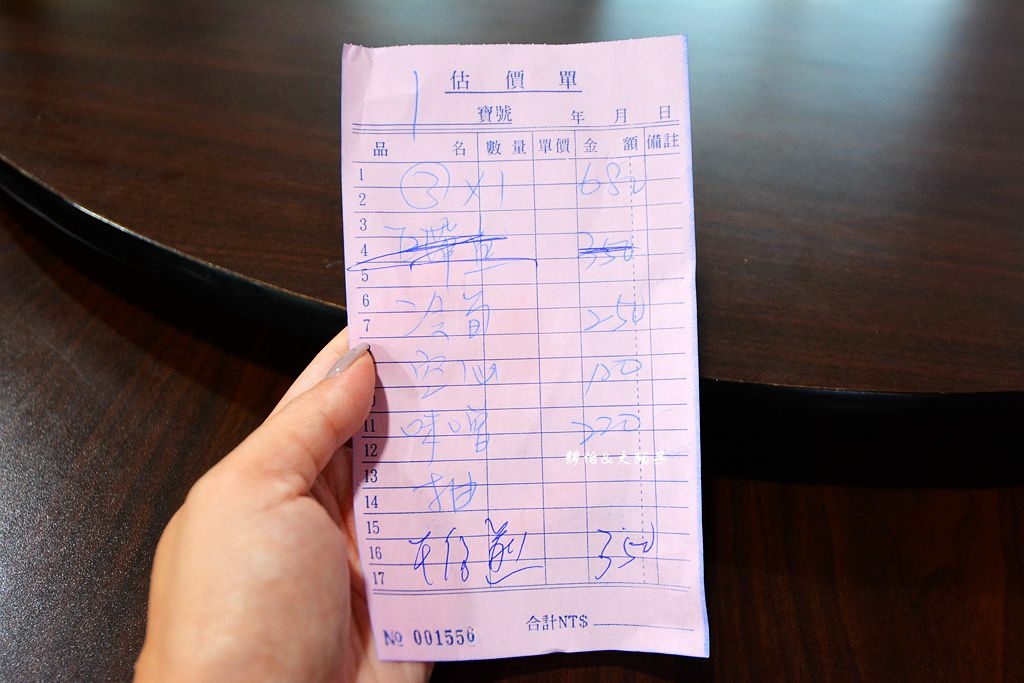 估價單
寶號 年 月 日
品名 數量 單價 金額 備註
1
2 ③x1 680
3
4 350
5
6
7 冷筍 250
空心 100
11 味噌 220
12
13
14 抽
15
16 蚵仔煎 350
17
合計NT$
№ 001556